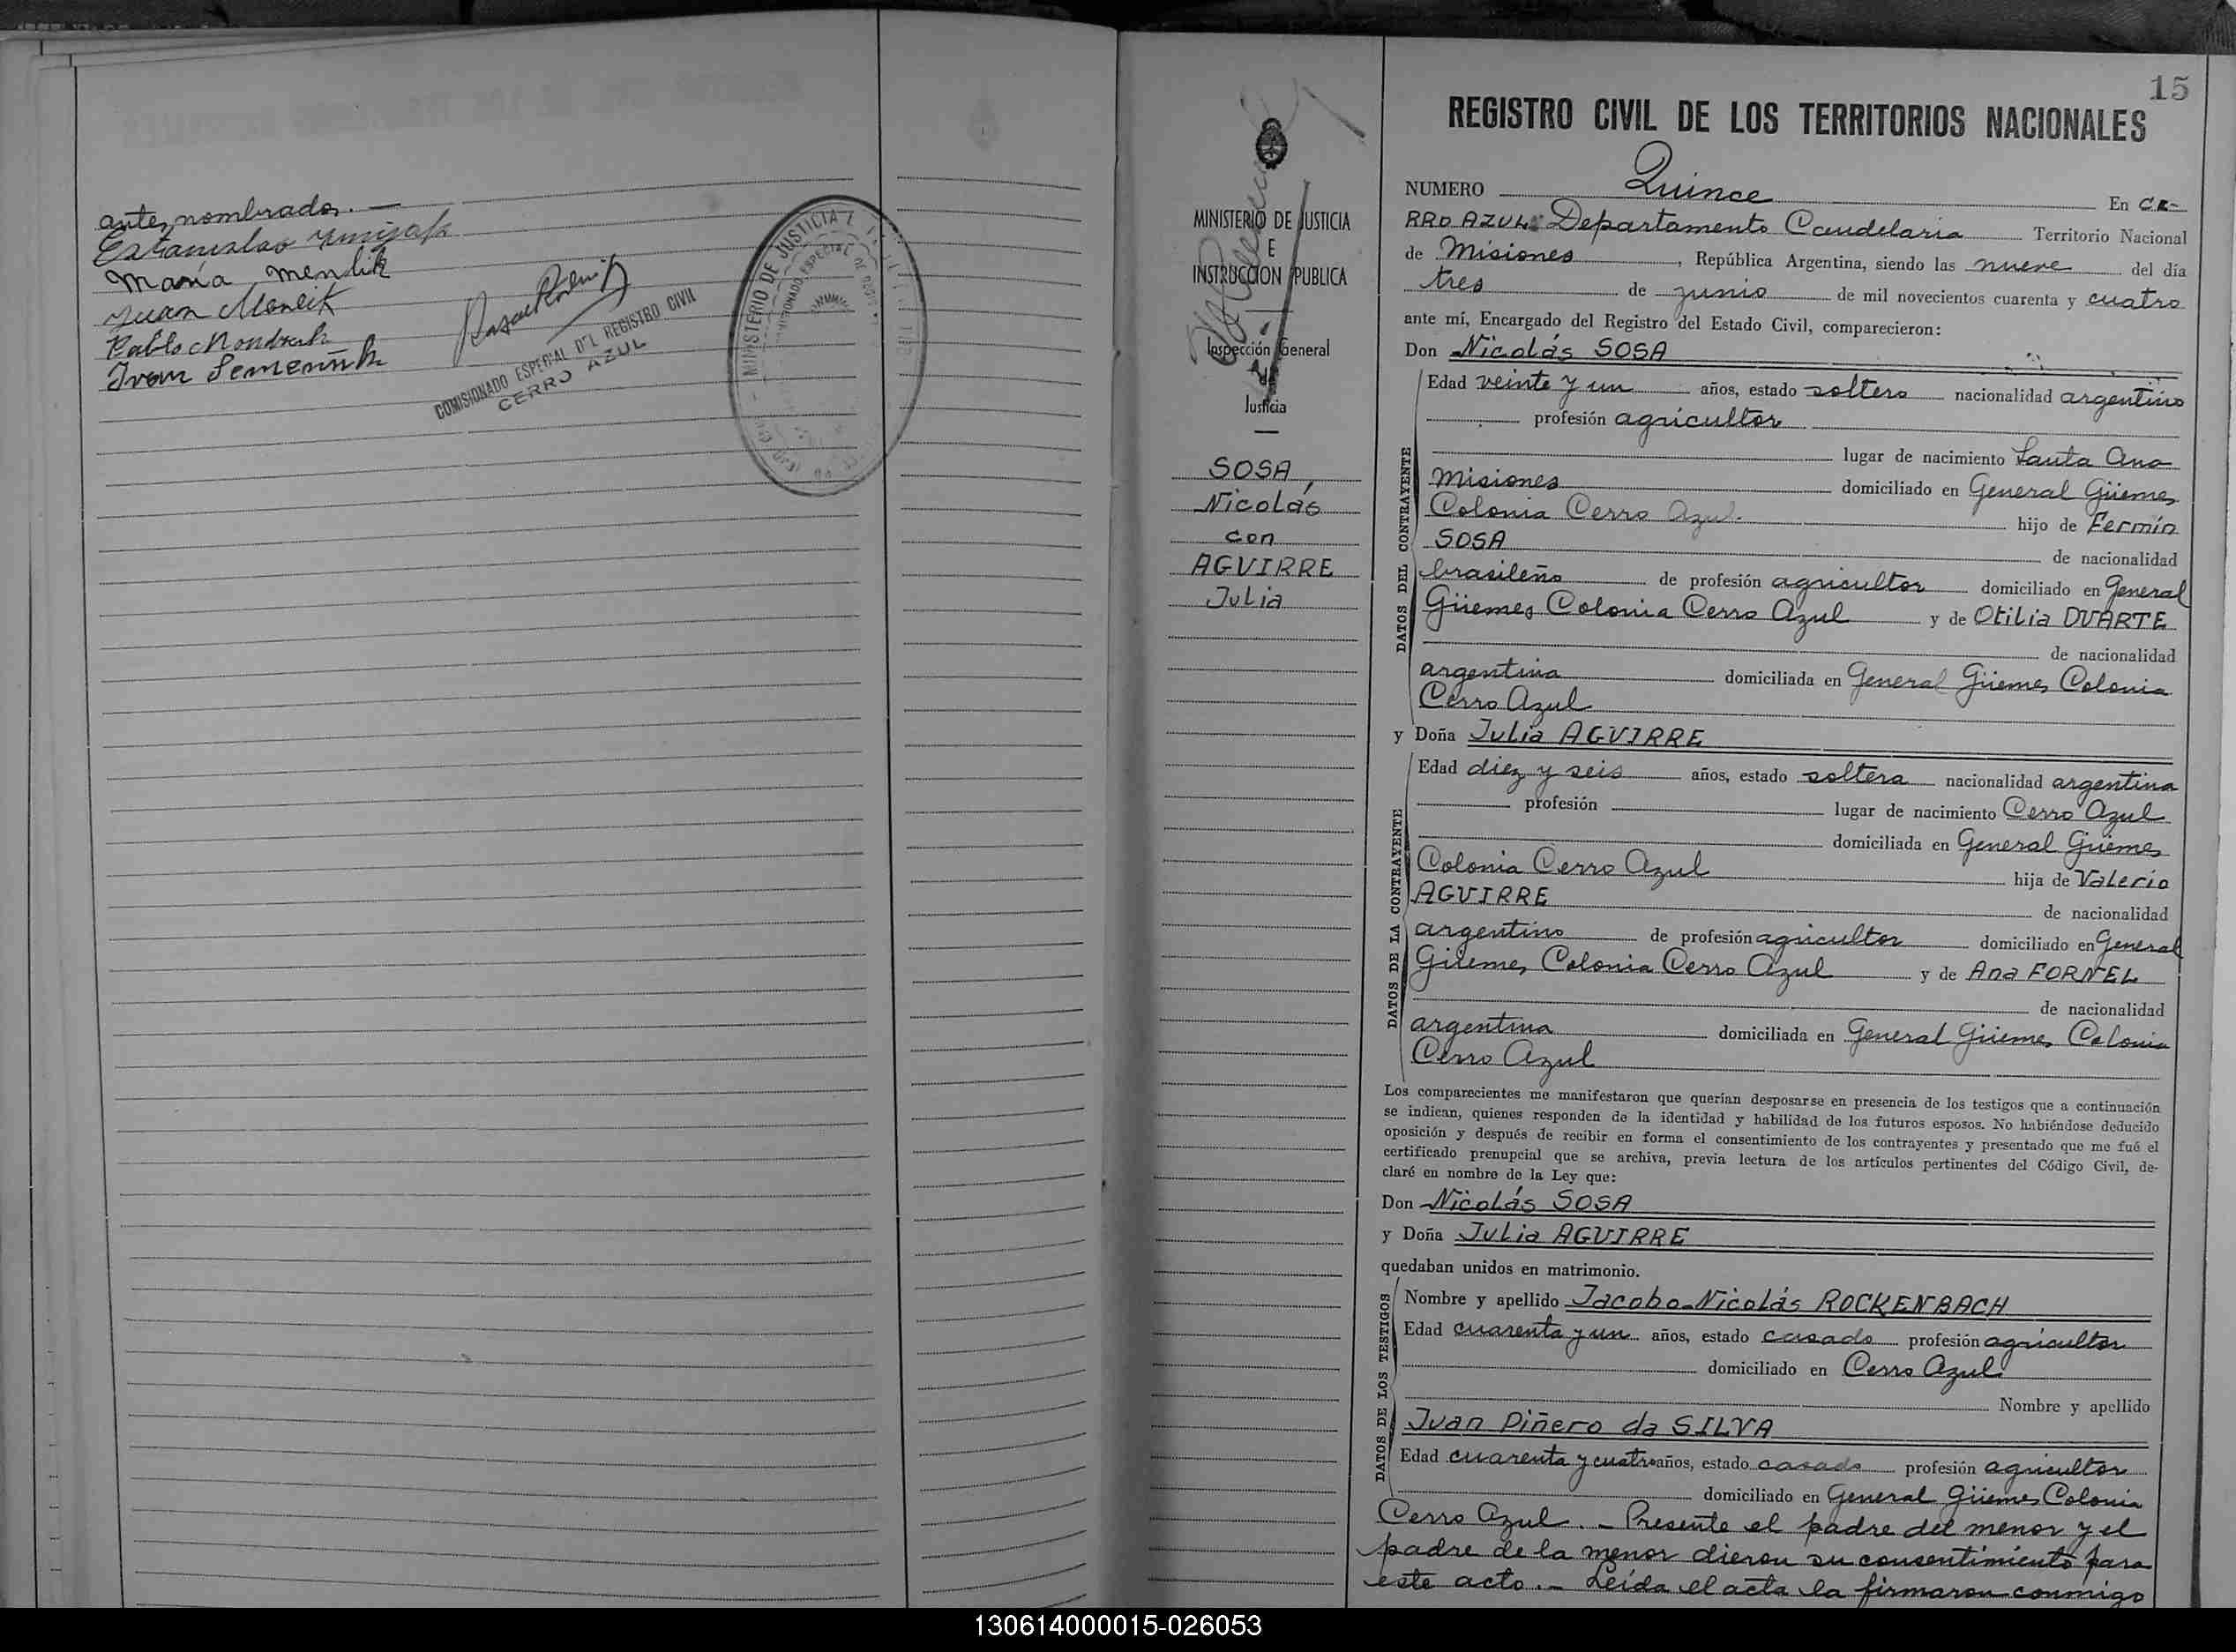 antes nombrados. —
Estanislao
María Mendik
Juan
Pablo
Ivan
COMISIONADO ESPECIAL DEL REGISTRO CIVIL
CERRO AZUL
MINISTERIO DE JUSTICIA E
COMISIONADO ESPECIAL DE
MINISTERIO DE JUSTICIA
E
INSTRUCCION PUBLICA
Inspección General
de
Justicia
SOSA,
Nicolás
con
AGUIRRE
Julia
15
REGISTRO CIVIL DE LOS TERRITORIOS NACIONALES
NUMERO Quince En CE-
RRO AZUL Departamento Candelaria Territorio Nacional
de Misiones, República Argentina, siendo las nueve del día
tres de junio de mil novecientos cuarenta y cuatro
ante mí, Encargado del Registro del Estado Civil, comparecieron:
Don Nicolás SOSA
DATOS DEL CONTRAYENTE
Edad veinte y un años, estado soltero nacionalidad argentino
profesión agricultor
lugar de nacimiento Santa Ana
Misiones domiciliado en General Güemes
Colonia Cerro Azul. hijo de Fermín
SOSA de nacionalidad
brasileño de profesión agricultor domiciliado en General
Güemes Colonia Cerro Azul y de Otilia DUARTE
de nacionalidad
argentina domiciliada en General Güemes Colonia
Cerro Azul
y Doña Julia AGUIRRE
DATOS DE LA CONTRAYENTE
Edad diez y seis años, estado soltera nacionalidad argentina
profesión lugar de nacimiento Cerro Azul
domiciliada en General Güemes
Colonia Cerro Azul hija de Valerio
AGUIRRE de nacionalidad
argentino de profesión agricultor domiciliado en General
Güemes Colonia Cerro Azul y de Ana FORNEL
de nacionalidad
argentina domiciliada en General Güemes Colonia
Cerro Azul
Los comparecientes me manifestaron que querían desposarse en presencia de los testigos que a continuación
se indican, quienes responden de la identidad y habilidad de los futuros esposos. No habiéndose deducido
oposición y después de recibir en forma el consentimiento de los contrayentes y presentado que me fué el
certificado prenupcial que se archiva, previa lectura de los artículos pertinentes del Código Civil, de-
claré en nombre de la Ley que:
Don Nicolás SOSA
y Doña Julia AGUIRRE
quedaban unidos en matrimonio.
DATOS DE LOS TESTIGOS
Nombre y apellido Jacobo Nicolás ROCKENBACH
Edad cuarenta y un años, estado casado profesión agricultor
domiciliado en Cerro Azul
Nombre y apellido
Juan Piñero da SILVA
Edad cuarenta y cuatro años, estado casado profesión agricultor
domiciliado en General Güemes Colonia
Cerro Azul. — Presente el padre del menor y el
padre de la menor dieron su consentimiento para
este acto. — Leída el acta la firmaron conmigo
130614000015-026053